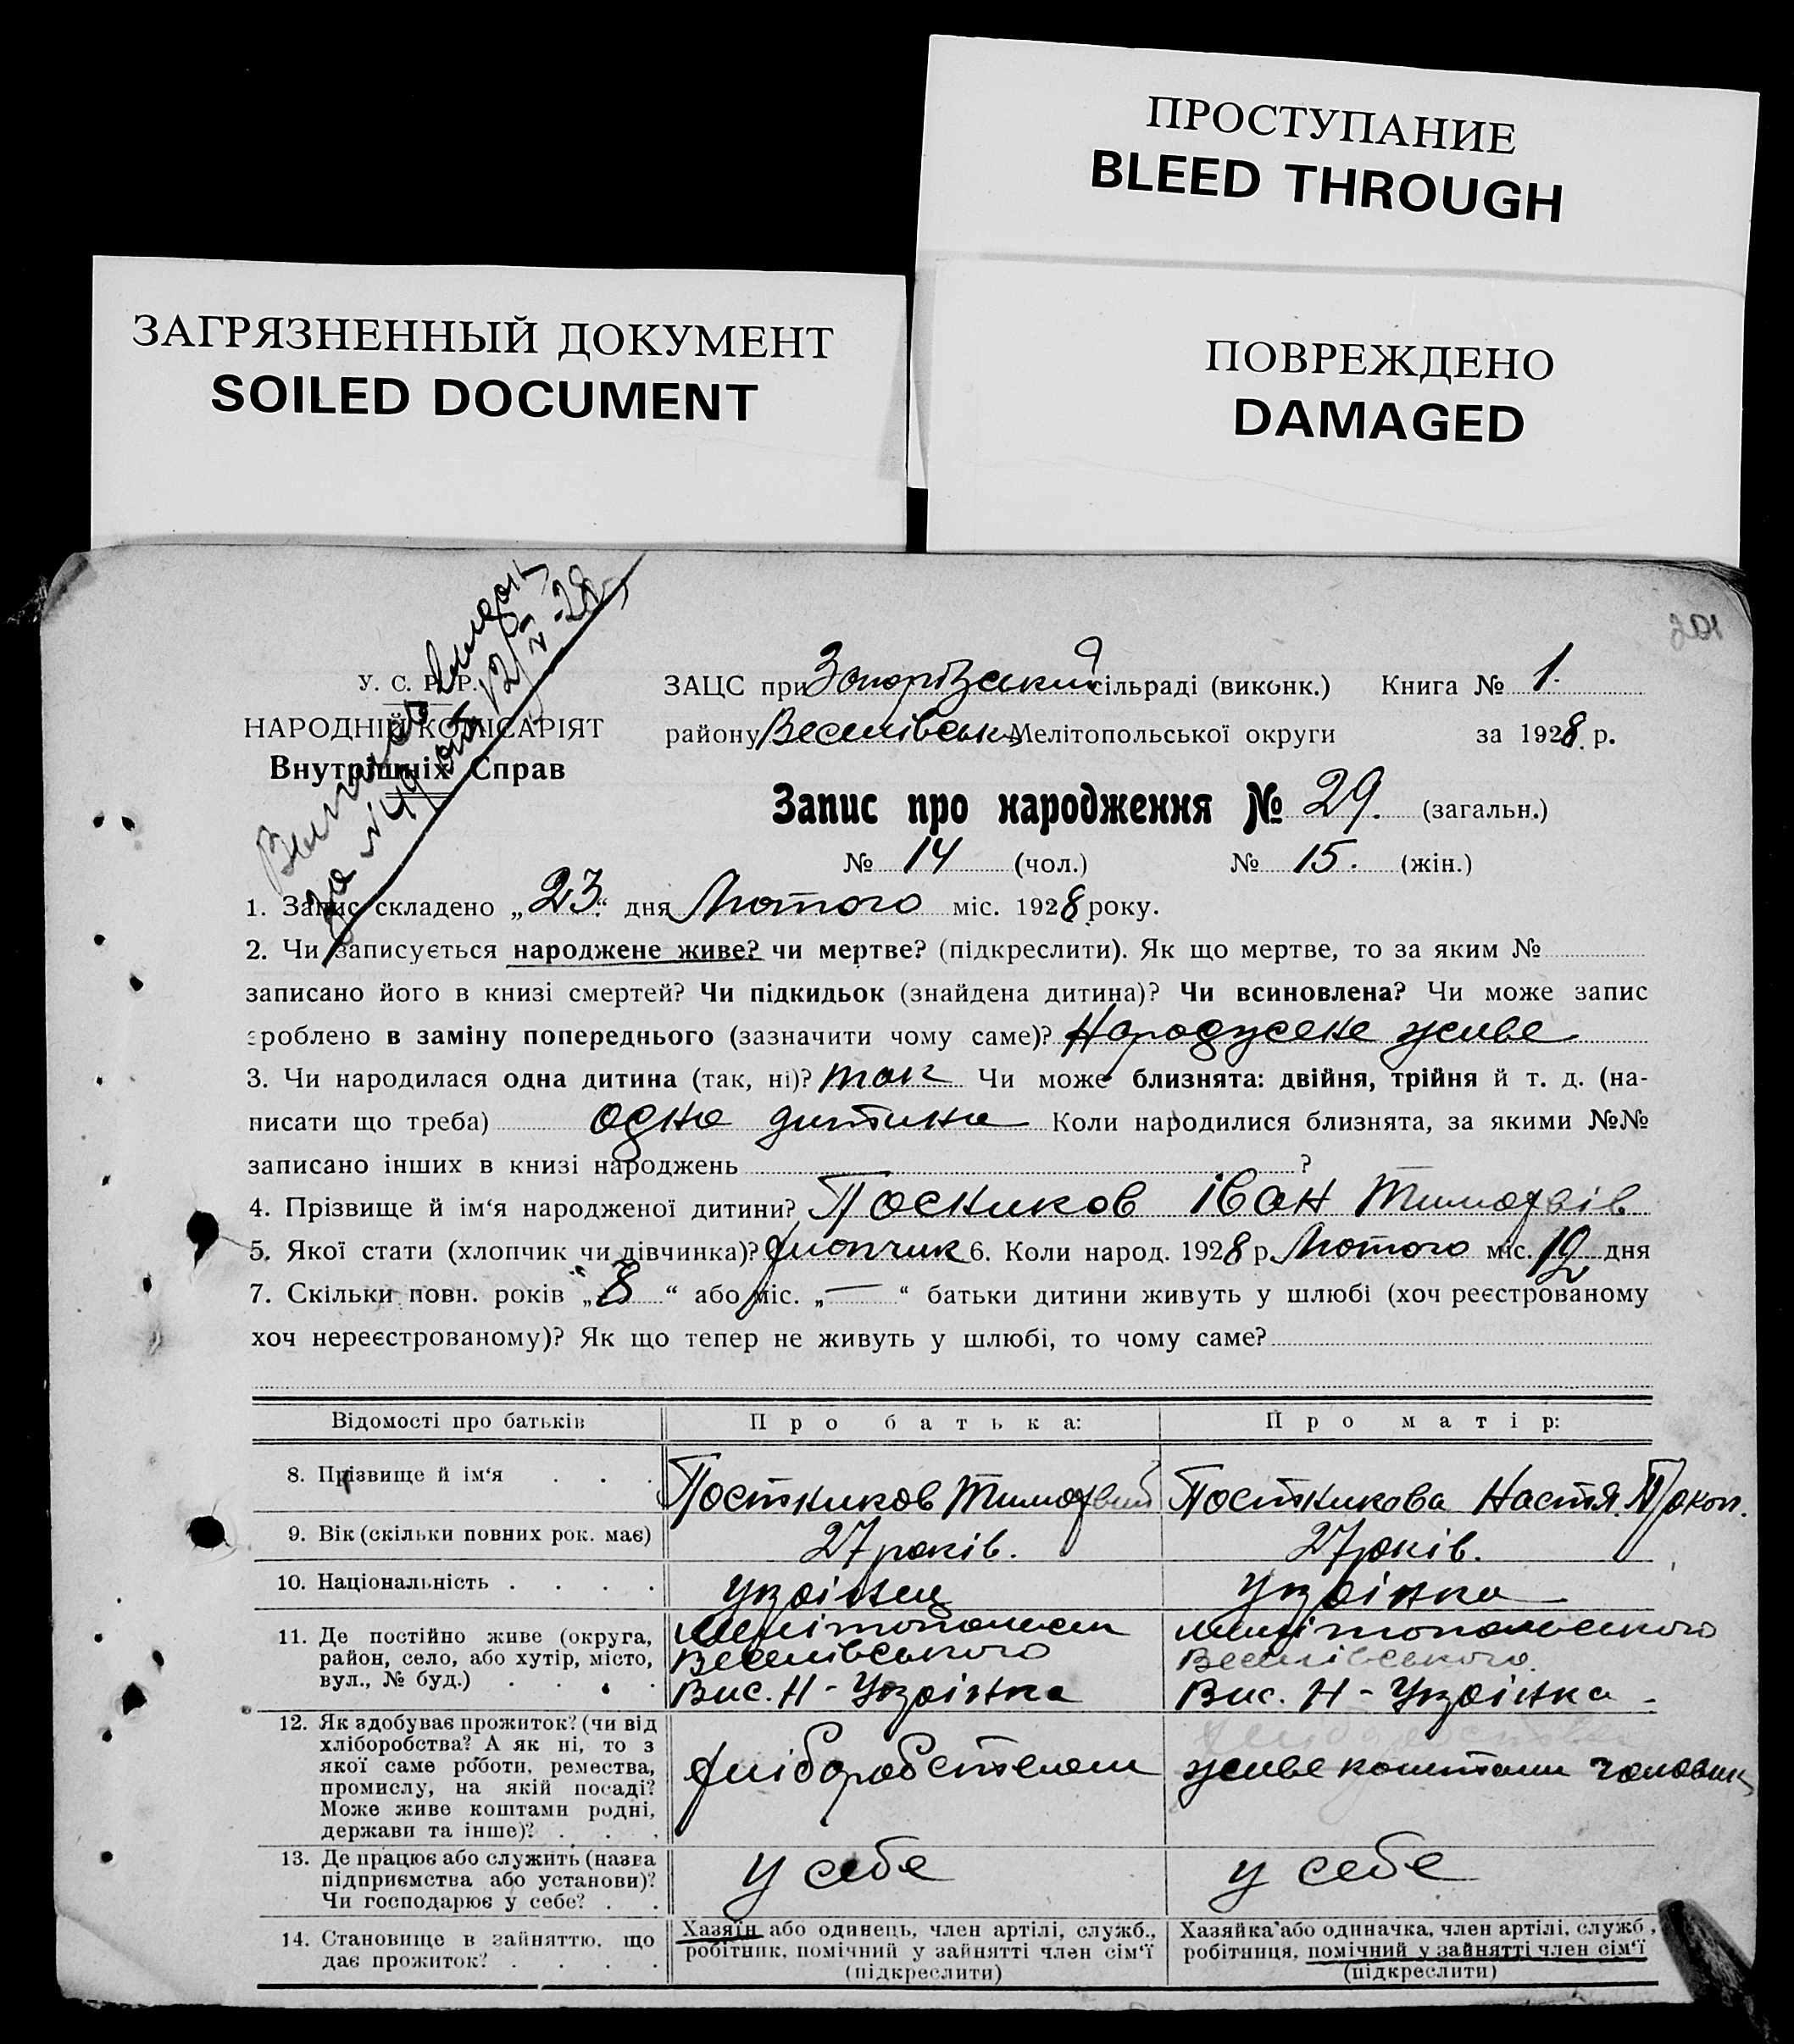 ПРОСТУПАНИЕ
BLEED THROUGH
ЗАГРЯЗНЕННЫЙ ДОКУМЕНТ
SOILED DOCUMENT
ПОВРЕЖДЕНО
DAMAGED
201
У. С. Р. Р.
НАРОДНІЙ КОМІСАРІЯТ
Внутрішніх Справ
за №49 12/IV-28
ЗАЦС при Запорізький сільраді (виконк.) Книга № 1.
району Веселівськ Мелітопольської округи за 1928 р.
Запис про народження № 29. (загальн.)
№ 14 (чол.) № 15. (жін.)
1. Запис складено „23“ дня Лютого міс. 1928 року.
2. Чи записується народжене живе? чи мертве? (підкреслити). Як що мертве, то за яким №
записано його в книзі смертей? Чи підкидьок (знайдена дитина)? Чи всиновлена? Чи може запис
зроблено в заміну попереднього (зазначити чому саме)? Народжене живе
3. Чи народилася одна дитина (так, ні)? так Чи може близнята: двійня, трійня й т. д. (на-
писати що треба) одна дитина Коли народилися близнята, за якими №№
записано інших в книзі народжень ?
4. Прізвище й ім‘я народженої дитини? Посников Іван Тимофвів
5. Якої стати (хлопчик чи дівчинка)? хлопчик 6. Коли народ. 1928 р. Лютого міс. 19 дня
7. Скільки повн. років „8“ або міс. „—“ батьки дитини живуть у шлюбі (хоч реєстрованому
хоч нереєстрованому)? Як що тепер не живуть у шлюбі, то чому саме?
Відомості про батьків Про батька: Про матір:
8. Прізвище й ім‘я . . . Постников Тимофвий Постникова Настя. Прокоп.
9. Вік (скільки повних рок. має) 27 років. 27 років.
10. Національність . . . . Укрдінец Укрдінка
11. Де постійно живе (округа,
район, село, або хутір, місто,
вул., № буд.) . . . .
Мелітопольськ
Веселівського
Вис. Н-Укрдінка
Мелітопольського
Веселівського.
Вис. Н-Укрдінка.
12. Як здобуває прожиток? (чи від
хліборобства? А як ні, то з
якої саме роботи, ремества,
промислу, на якій посаді?
Може живе коштами родні,
держави та інше)? . . .
хліборобством
живе коштами чоловік
13. Де працює або служить (назва
підприємства або установи)?
Чи господарює у себе? . .
у себе
у себе
14. Становище в зайняттю, що
дає прожиток? . . . .
Хазяїн або одинець, член артілі, служб.,
робітник, помічний у зайнятті член сім‘ї
(підкреслити)
Хазяйка або одиначка, член артілі, служб.,
робітниця, помічний у зайнятті член сім‘ї
(підкреслити)